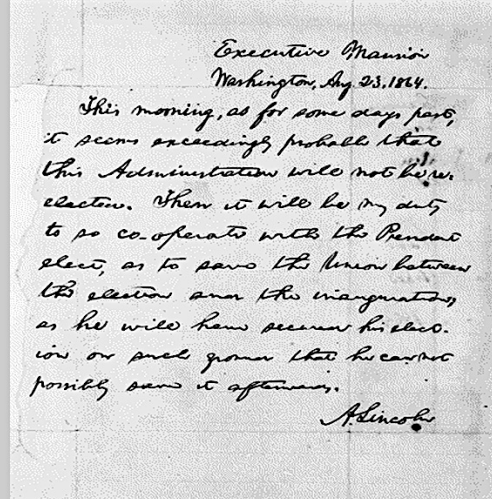 Executive Mansion
Washington, Aug. 23, 1864.
This morning, as for some days past,
it seems exceedingly probable that
this Administration will not be re-
elected. Then it will be my duty
to so co-operate with the President
elect, as to save the Union between
the election and the inauguration;
as he will have secured his elect-
ion on such ground that he can not
possibly save it afterwards.
A. Lincoln